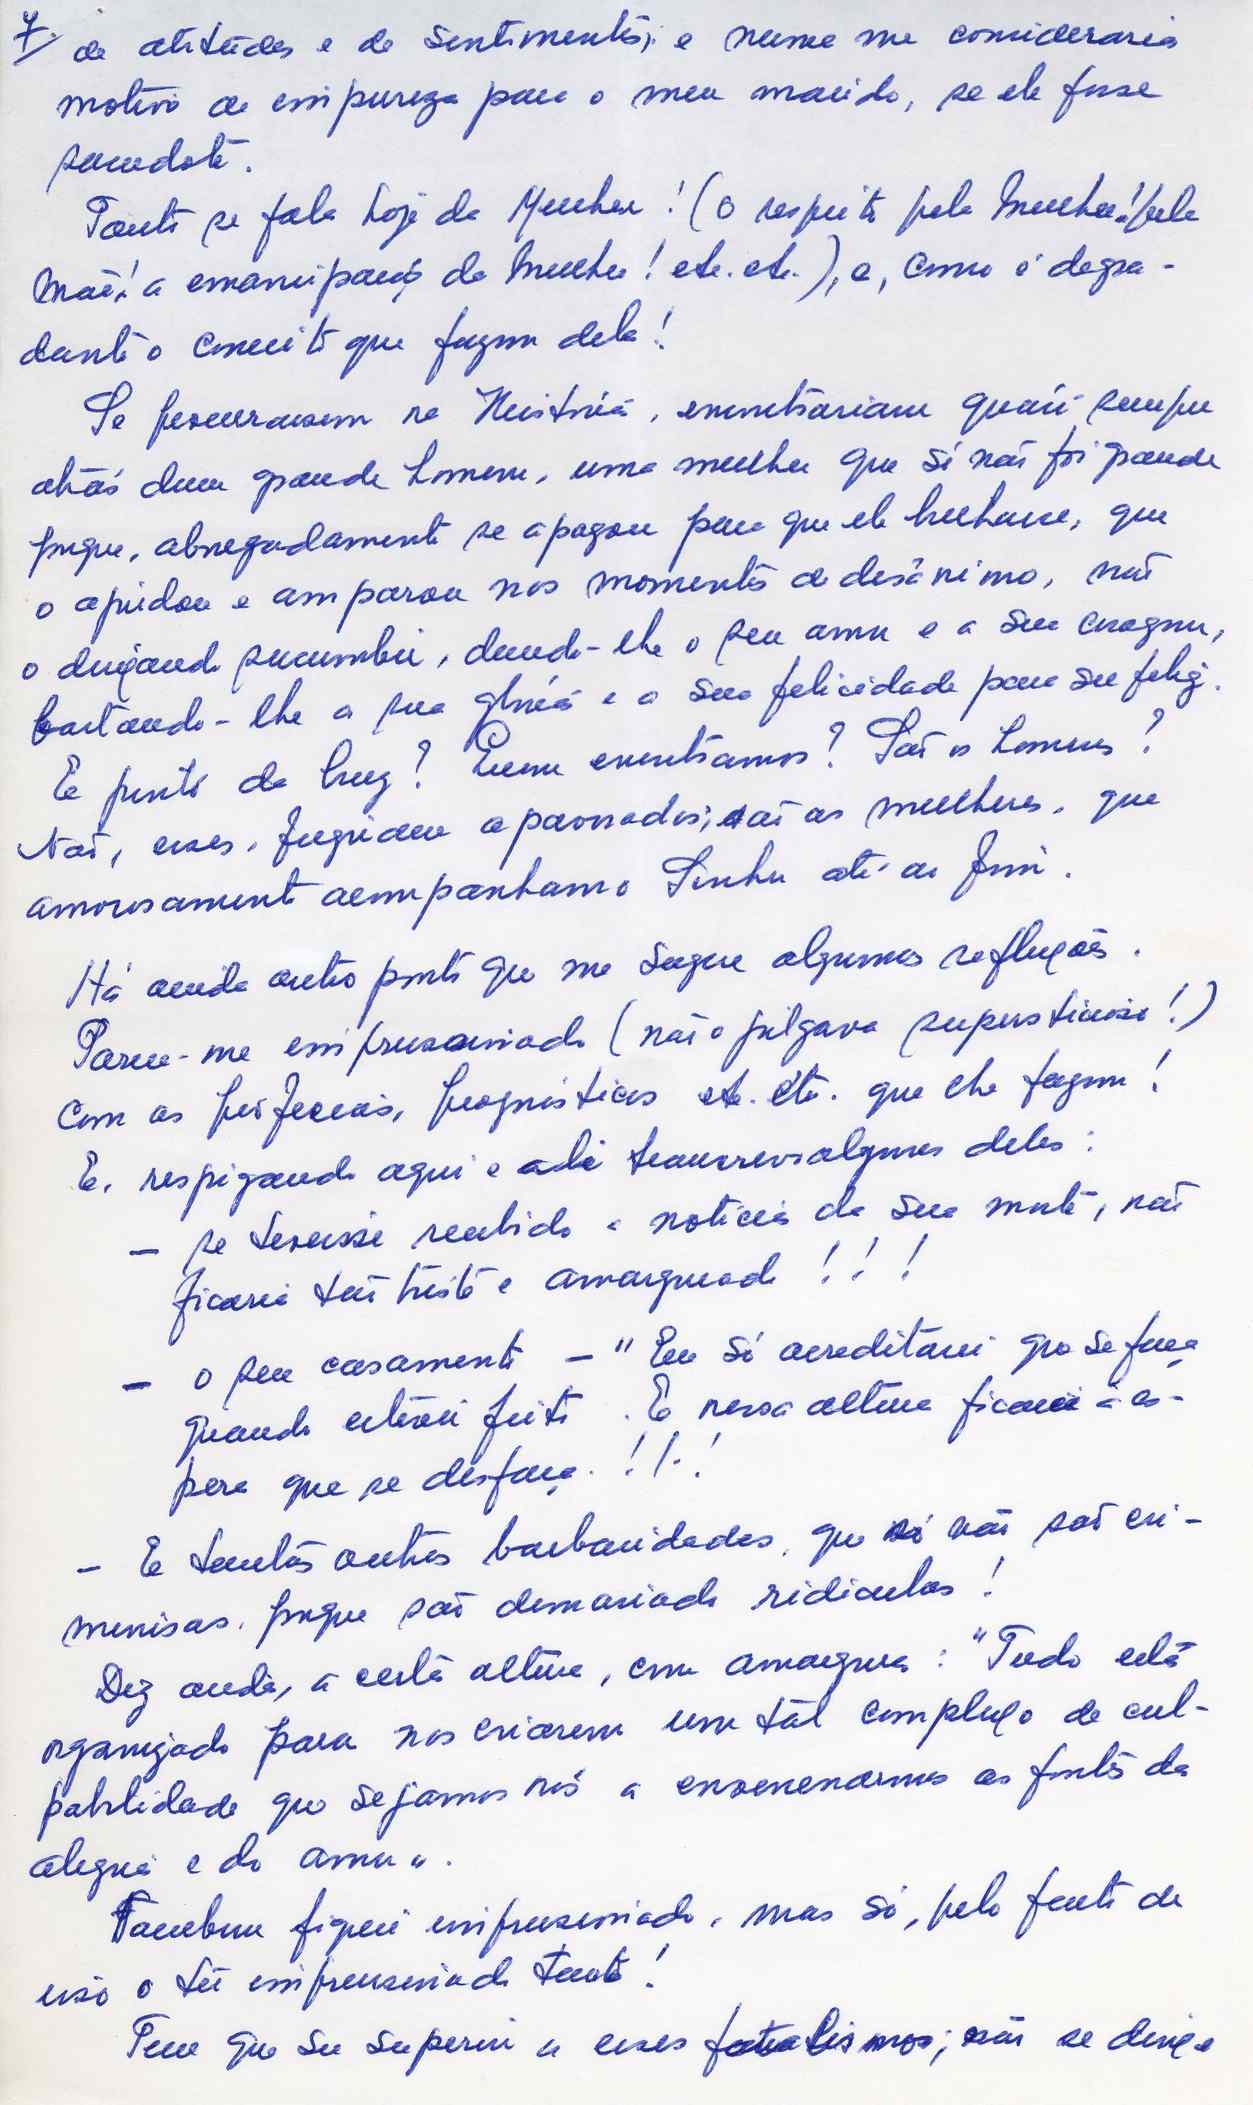 7. de atitudes e de sentimentos; e nunca me consideraria
motivo de impureza para o meu marido, se ele fosse
sacerdote.
Tanto se fala hoje da Mulher! (o respeito pela Mulher! pela
Mãe! a emancipação da Mulher! etc. etc.), e, como é degra-
dante o conceito que fazem dela!
Se procurassem na História, encontrariam quási sempre
atrás dum grande homem, uma mulher que só não foi grande
porque, abnegadamente se apagou para que ele brilhasse, que
o ajudou e amparou nos momentos de desânimo, não
o deixando sucumbir, dando-lhe o seu amor e a sua coragem,
bastando-lhe a sua glória e a sua felicidade para ser feliz.
E junto da Cruz? Quem encontramos? São os homens?
Não, esses, fugiram apavorados; são as mulheres, que
amorosamente acompanham o Senhor até ao fim.
Há ainda outro ponto que me sugere algumas reflexões.
Parece-me impressionado (não o julgava supersticioso!)
com as profecias, prognósticos etc. etc. que lhe fazem!
E, respigando aqui e ali transcrevo algumas delas:
- se tivesse recebido a notícia da sua morte, não
ficaria tão triste e amargurado!!!
- o seu casamento - "Eu só acreditarei que se faça
quando estiver feito. E nessa altura ficarei à es-
pera que se desfaça.!!!
- E tantas outras barbaridades, que só não são cri-
minosas, porque são demasiado ridículas!
Diz ainda, a certa altura, com amargura: "Tudo está
organizado para nos criarem um tal complexo de cul-
pabilidade que sejamos nós a envenenarmos as fontes da
alegria e do amor".
Também fiquei impressionada, mas só, pelo facto de
isso o ter impressionado tanto!
Tem que ser superior a esses fatalismos; não se deixe